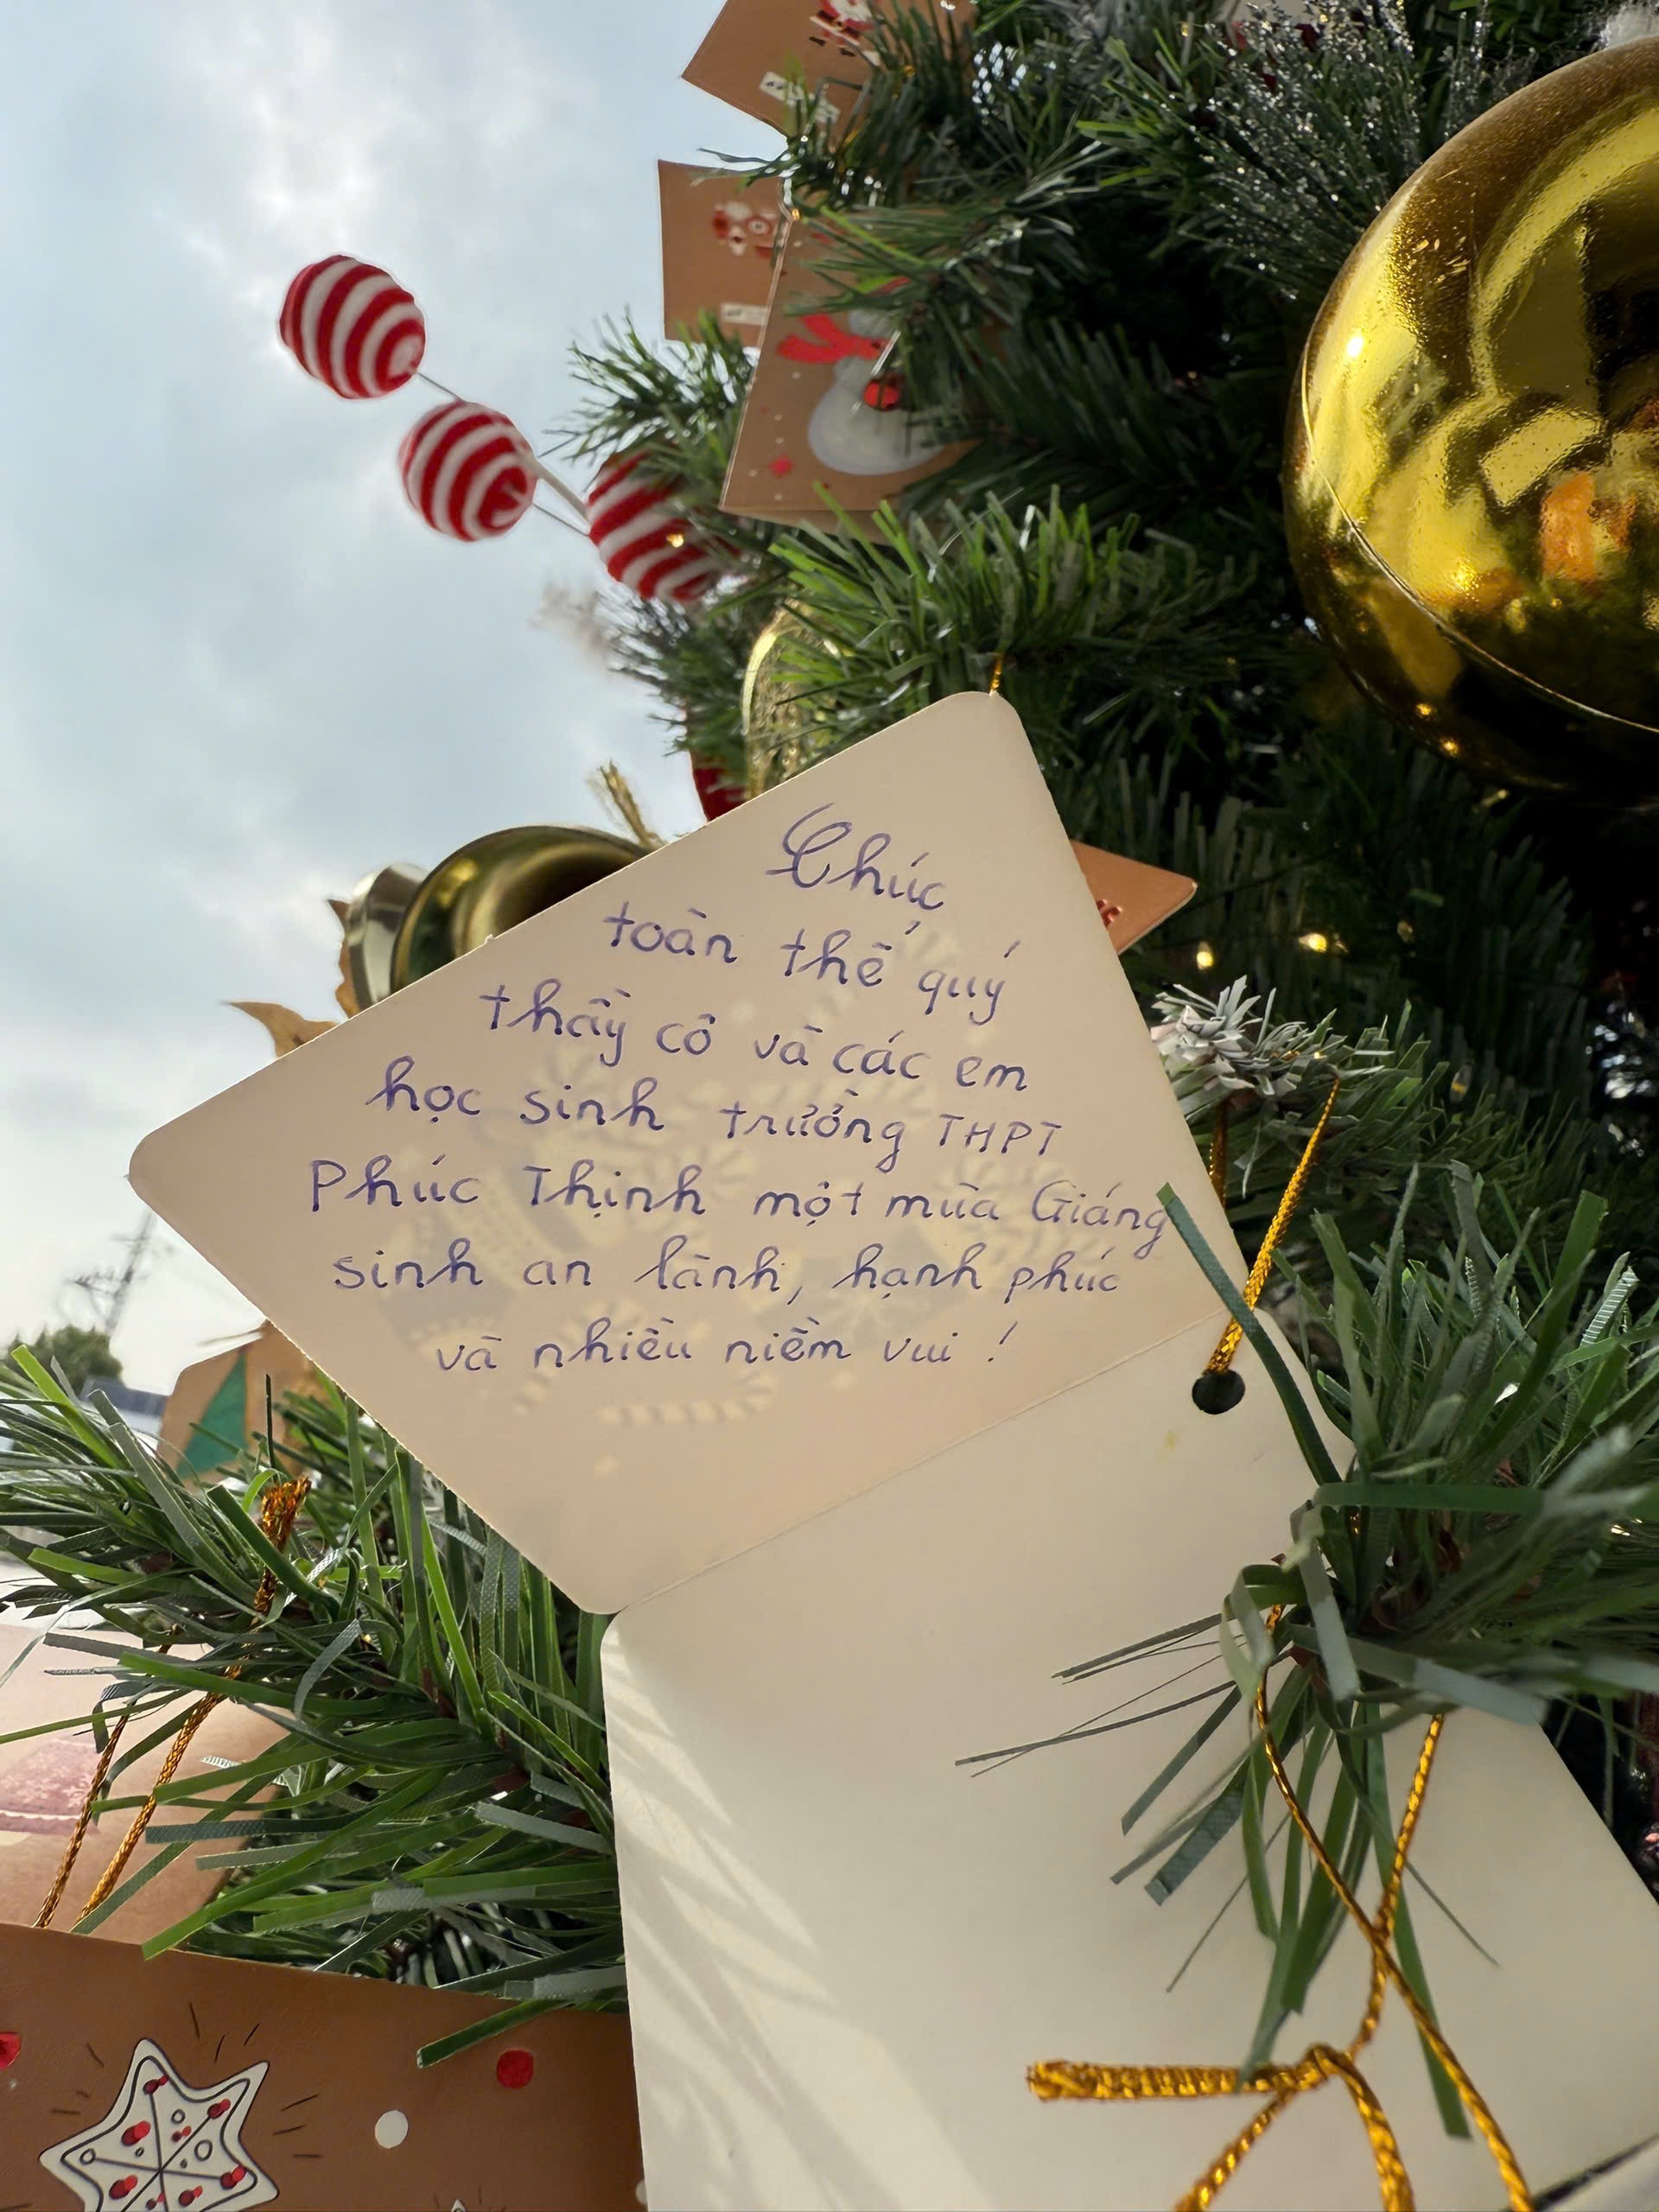 Chúc
toàn thể quý
thầy cô và các em
học sinh trường THPT
Phúc Thịnh một mùa Giáng
sinh an lành, hạnh phúc
và nhiều niềm vui !